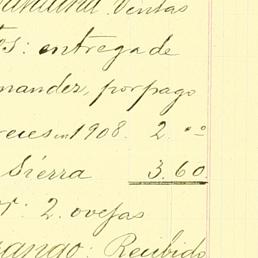 Ventas
entrega de
nandez, por pago
reces en 1908. 2. " "
Sierra 3.60
2. ovejas
rango: Recibido